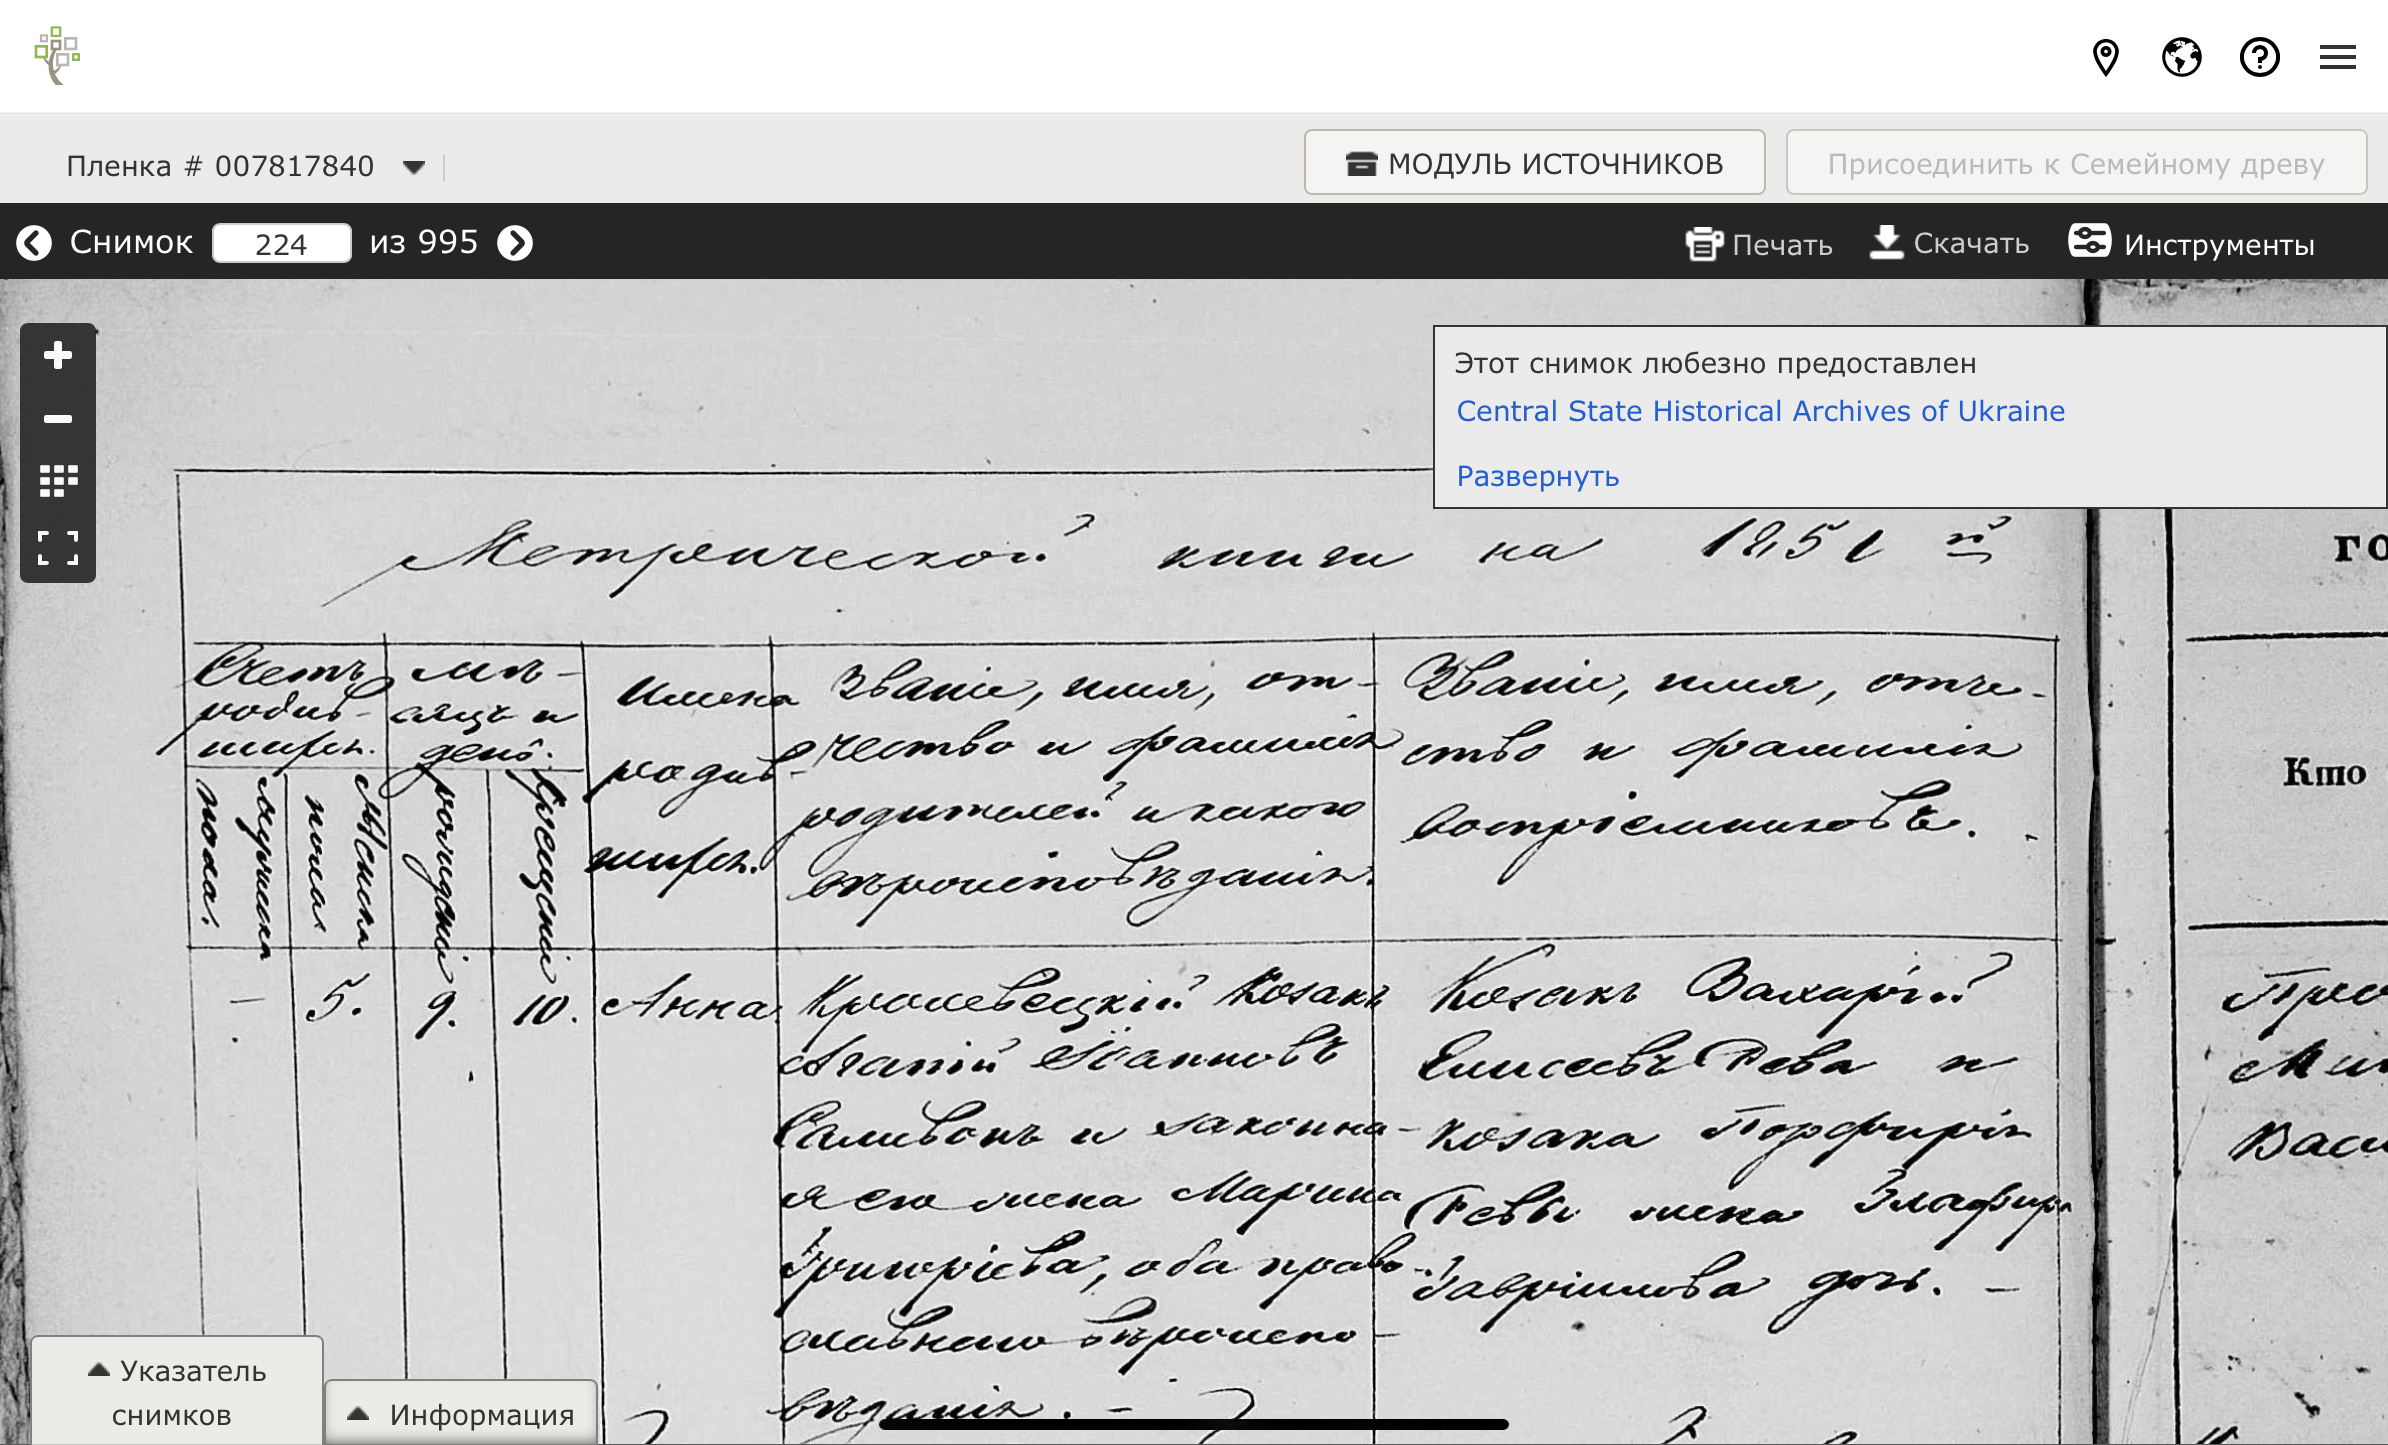 Пленка # 007817840
МОДУЛЬ ИСТОЧНИКОВ
Присоединить к Семейному древу
Снимок 224 из 995
Печать
Скачать
Инструменты
Этот снимок любезно предоставлен
Central State Historical Archives of Ukraine
Развернуть
Метрической книги на 1851й
го
Счетъ
родив-
шихся.
мѣ-
сяцъ и
день.
женска
пола.
Мужска
пола
рожденія
крещенія
Имена
родив-
шихся.
Званіе, имя, от-
чество и фамилія
родителей и какого
вѣроисповѣданія.
Званіе, имя, отче-
ство и фамилія
воспріемниковъ.
Кто
– 5. 9. 10. Анна.
Кролевецкій Козакъ
Агапій Іоанновъ
Саливонъ и законна-
я его жена Марина
Григоріева, оба право-
славнаго вѣроиспо-
вѣданія. –
Козакъ Захарій
Елисеевъ Рева и
козака Порфирія
Ревы жена Глафира
Гавріилова дочь. –
Васи
Указатель
снимков
Информация